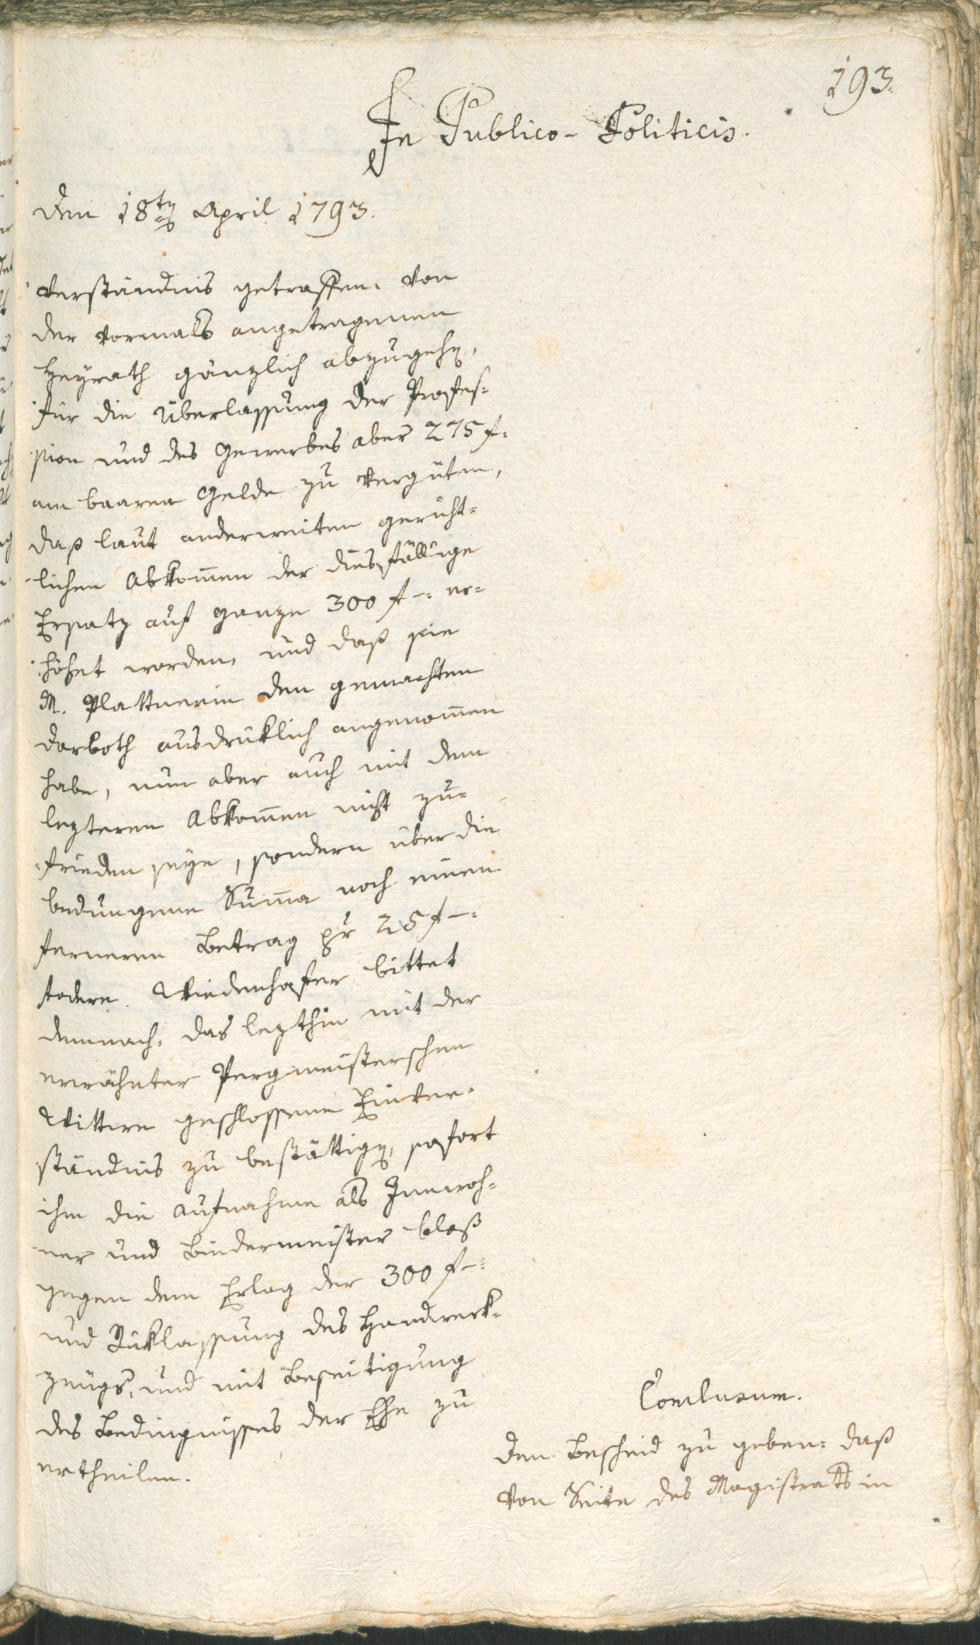 193.
In Publico-Politicis.
Den 18ten April 1793.
verständnis getroffen, von
der vormals angetragenen
Heÿrath gänzlich abzugehen,
für die Überlassung der Profes-
sion und des Gewerbes aber 275 f:
am baaren Gelde zu vergüten,
daß laut anderweiten gericht-
lichen Abkom̅en der diesfällige
Ersatz auf ganze 300 f –: er-
höhet worden, und daß sie
M. Plattnerin den gemachten
Darboth ausdrüklich angenom̅en
habe, nun aber auch mit dem
lezteren Abkom̅en nicht zu-
frieden seÿe, sondern über die
bedungene Sum̅a noch einen
ferneren Betrag pr 25 f –:
fodere. Wiedenhofer bittet
demnach, das lezthin mit der
erwähnter Pergmeisterschen
Wittwe geschlossene Einver-
ständnis zu bestättigen, sofort
ihm die Aufnahme als Innwoh-
ner und Bindermeister bloß
gegen dem Erlag der 300 f –:
und Rüklassung des Handwerk-
zeugs, und mit Beseitigung
des Bedingnisses der Ehe zu
ertheilen.
Conclusum.
Dem Bescheid zu geben: daß
von Seite des Magistrats in